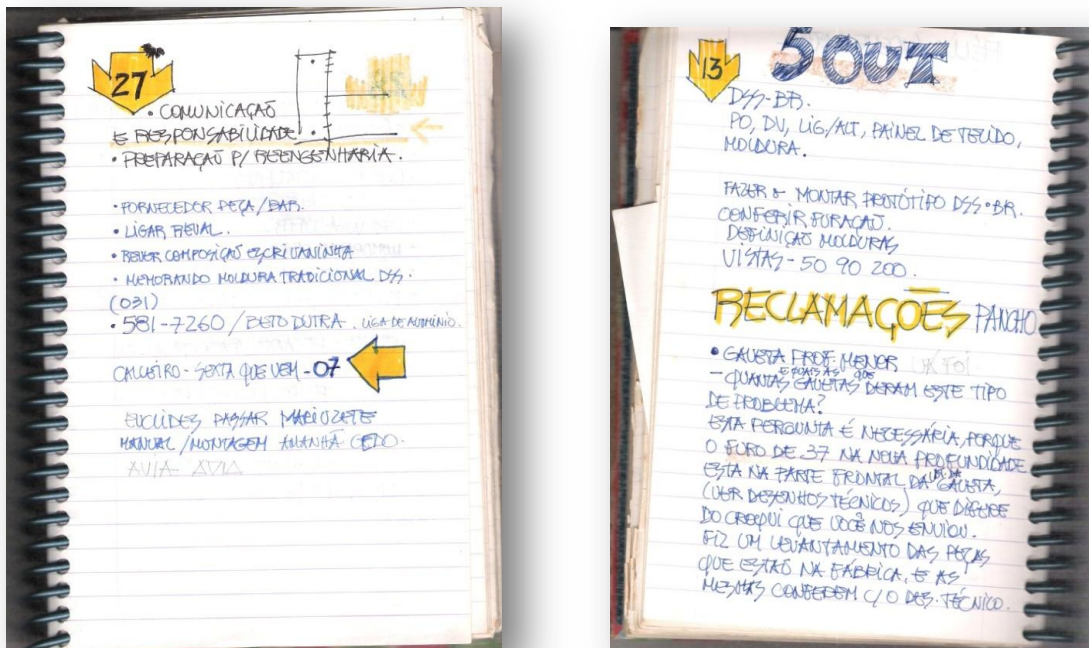 27
• COMUNICAÇAÕ
E RESPONSABILIDADE
• PREPARAÇAÕ P/ REENGENHARIA.
• FORNECEDOR PEÇA/BAR.
• LIGAR
• REVER COMPOSIÇAÕ ESCRIVANINHA
• MEMORANDO MOLDURA TRADICIONAL DSS.
(031)
• 581-7260 / BETO DUTRA. LIGA DE ALUMÍNIO.
SEXTA QUE VEM - 07
EUCLIDES PASSAR
MANUAL / MONTAGEM AMANHÃ CEDO.
13
5 OUT
DSS-BR.
PO, DV, LIG/ALT, PAINEL DE TECIDO,
MOLDURA.
FAZER & MONTAR PROTÓTIPO DSS•BR.
CONFERIR FURAÇAÕ.
DEFINIÇAÕ MOLDURAS
VISTAS - 50 90 200.
RECLAMAÇÕES PANCHO
• GAVETA PROF. MENOR JÁ FOI
E QUAIS AS QUE
- QUANTAS GAVETAS DERAM ESTE TIPO
DE PROBLEMA?
ESTA PERGUNTA É NECESSÁRIA, PORQUE
O FURO DE 37 NA NOVA PROFUNDIDADE
ESTA NA PARTE FRONTAL DA GAVETA,
(VER DESENHOS TÉCNICOS) QUE DIFERE
DO CROQUI QUE VOCÊ NOS ENVIOU.
FIZ UM LEVANTAMENTO DAS PEÇAS
QUE ESTAÕ NA FÁBRICA, E AS
MESMAS CONFEREM C/ O DES. TÉCNICO.